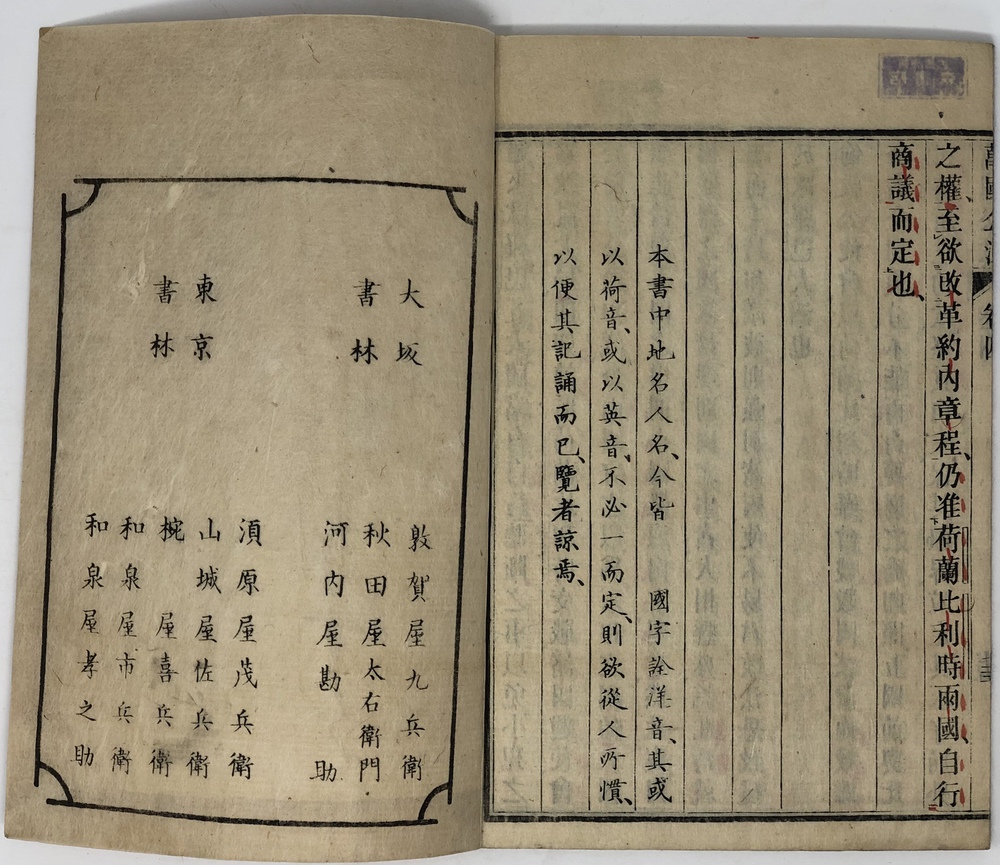 萬國公法 卷四
之權、至欲改革約內章程、仍准荷蘭比利時兩國、自行
商議而定也、
本書中地名人名、今皆 國字詮洋音、其或
以荷音、或以英音、不必一而定、則欲從人所慣、
以便其記誦而已、覽者諒焉、
大坂
書林
敦賀屋九兵衛
秋田屋太右衛門
河內屋勘助
東京
書林
須原屋茂兵衛
山城屋佐兵衛
椀屋喜兵衛
和泉屋市兵衛
和泉屋孝之助